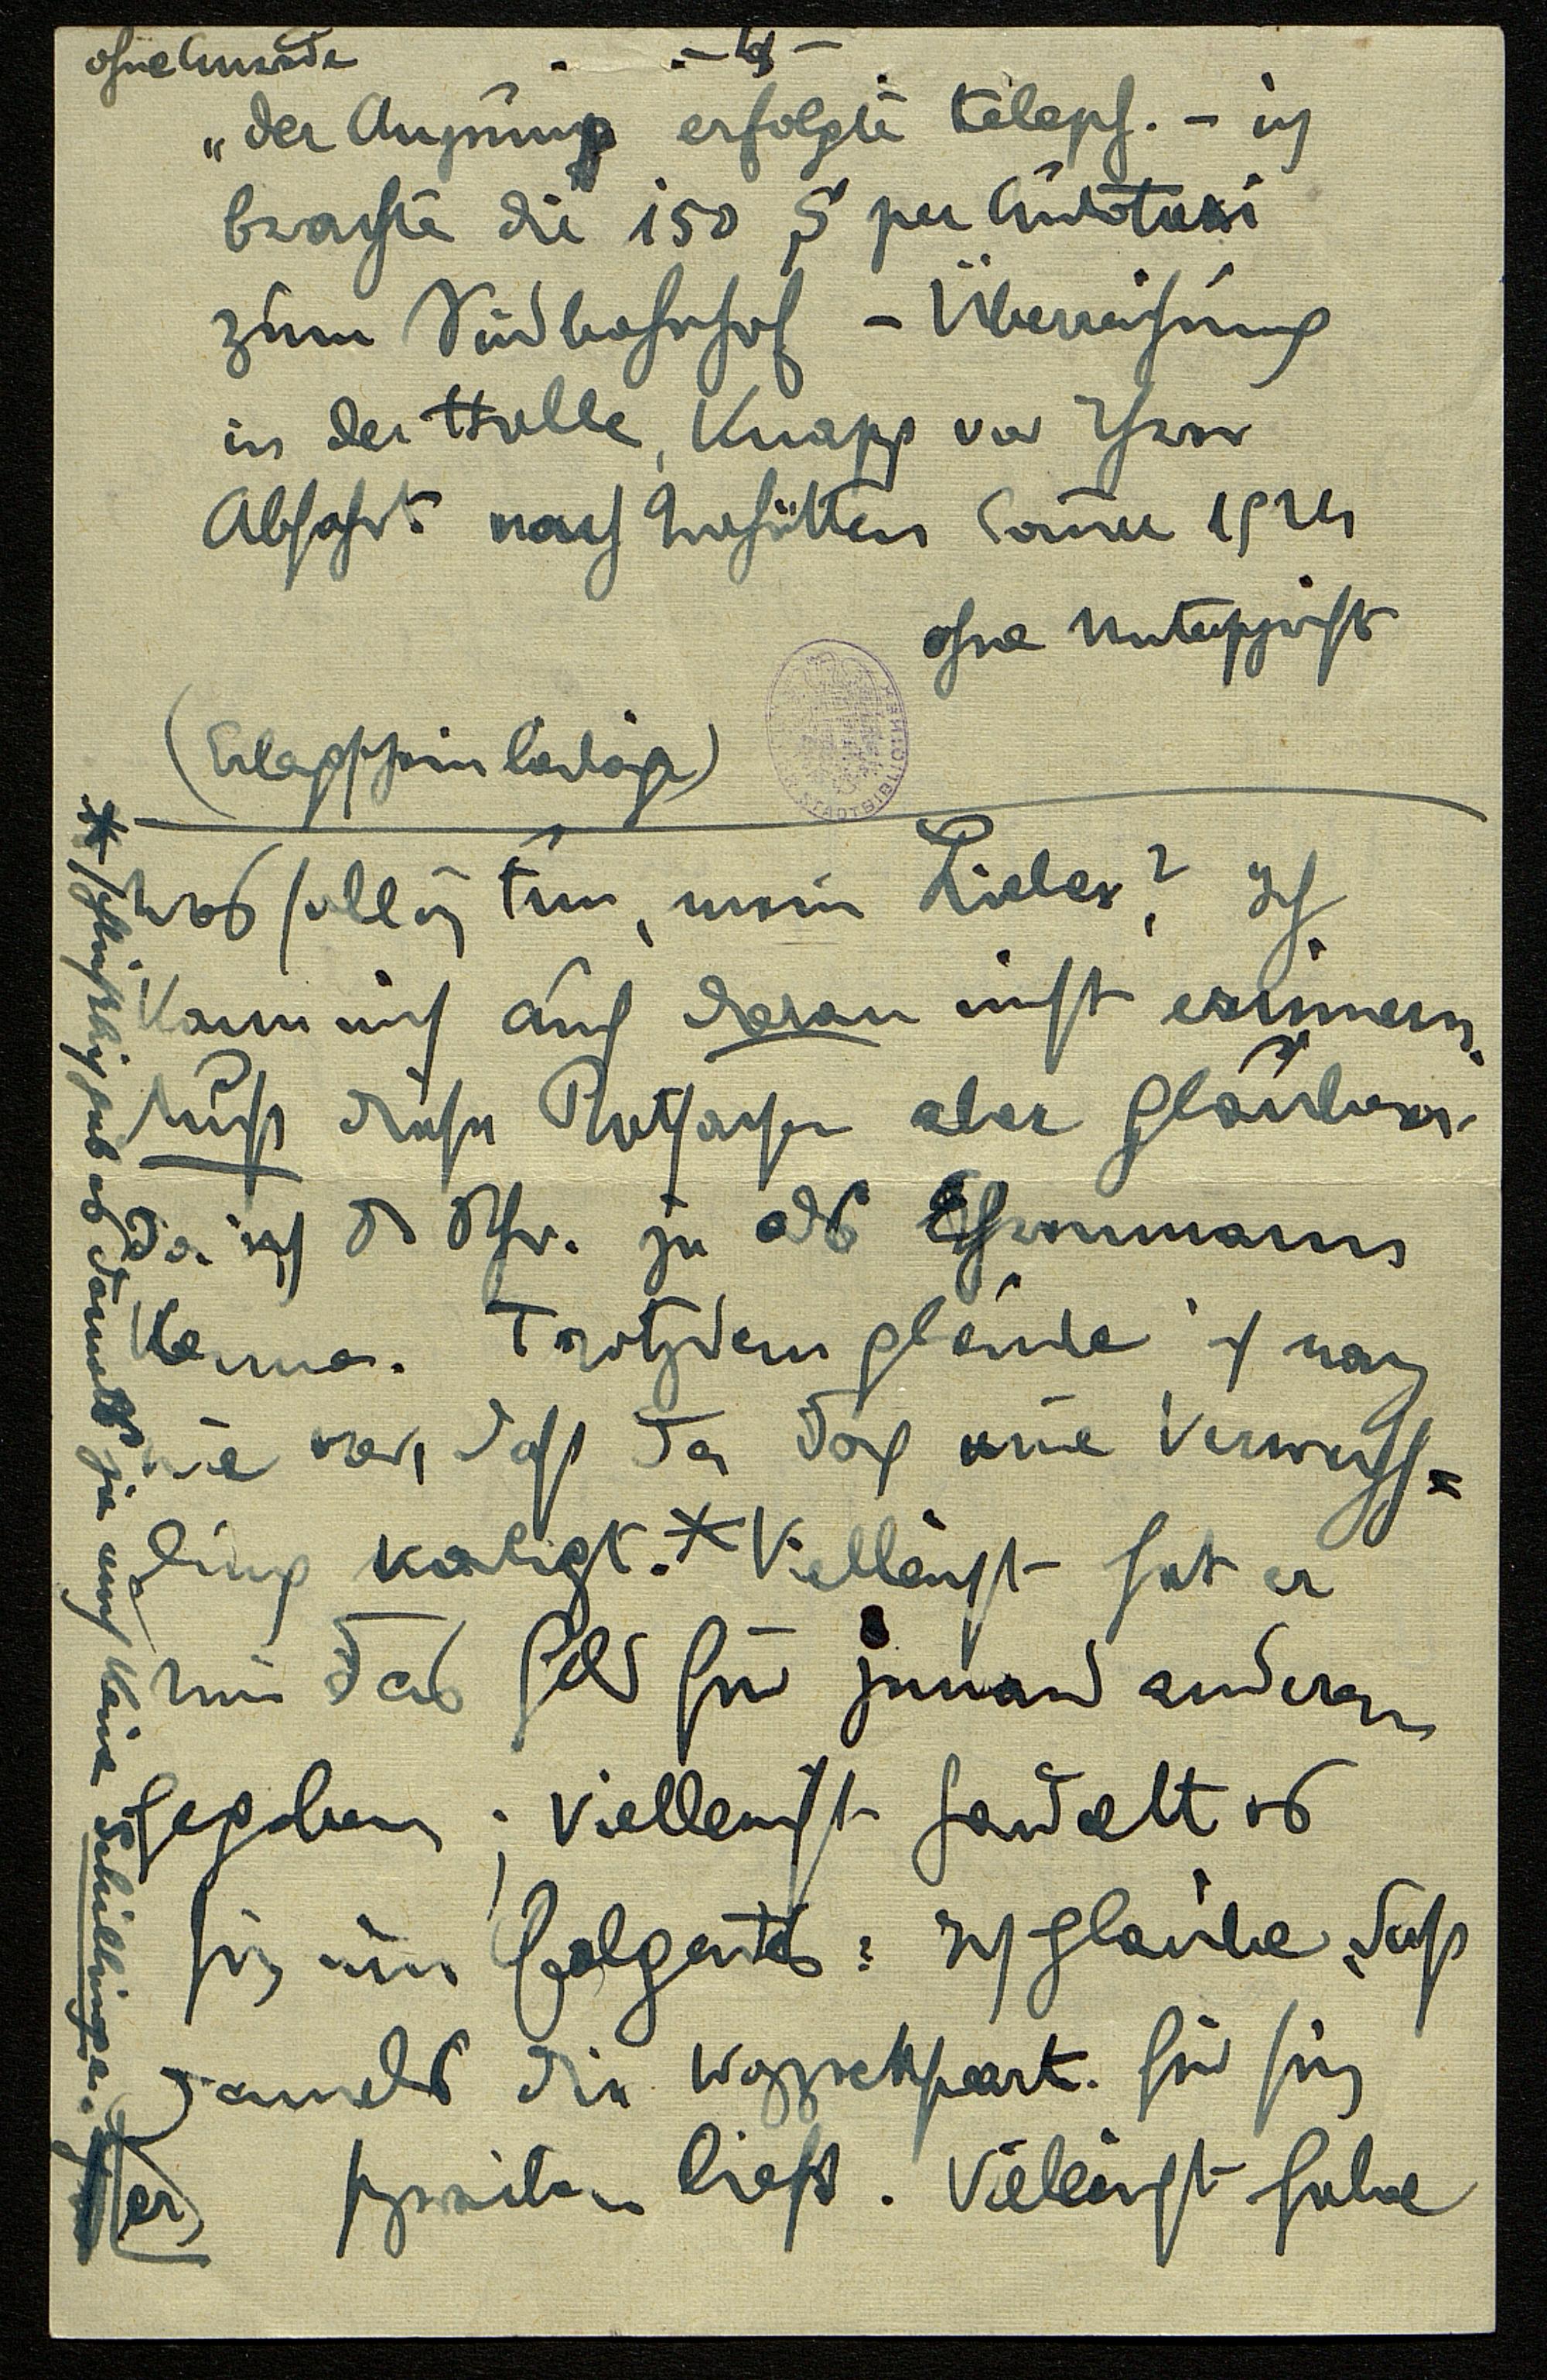 ohne Anrede
„der Anspruch erfolgte teleph. – ich
brachte die 150 S per Autotaxi
zum Südbahnhof – Überreichung
in der Halle, knapp vor Ihrer
Abfahrt nach Sommer 1924
ohne Unterschrift
(Erlagschein beiliegt)
Was soll ich tun, mein Lieber? Ich
kann mich auch daran nicht erinnern.
Muß diese Tatsachen aber glauben.
Da ich D Schr. ja als Ehrenmann
kenne. Trotzdem glaube ich nach
wie vor, daß da doch eine Verwechs=
lung vorliegt. * Vielleicht hat er
mir das Geld für jemand anderen
gegeben; vielleicht handelt es
sich um folgendes: Ich glaube, daß
damals die part. für sich
schreiben ließ. Vielleicht habe
* schließlich gab es damals ja auch keine Schillinge.
(er)
STADTBIBLIOTHEK